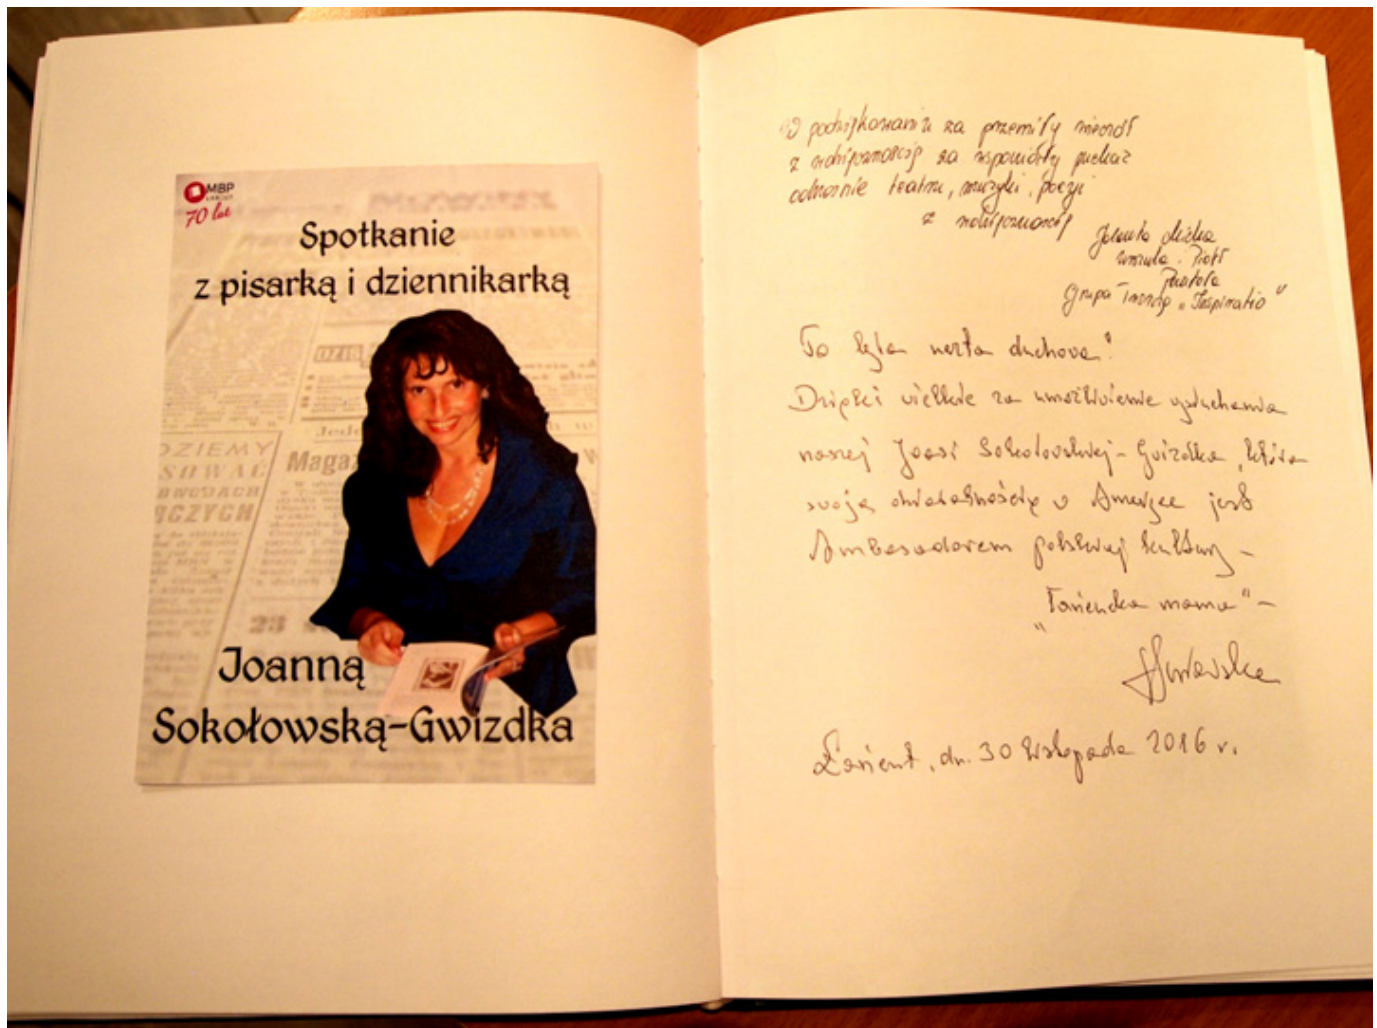 MBP
ŁAŃCUT
70 lat
Spotkanie
z pisarką i dziennikarką
DZIEMY
SOWAĆ
Magaz
23
Joanną
Sokołowską-Gwizdka
W podziękowaniu za przemiły wieczór
z wdzięcznością za wspaniały przekaz
odnośnie teatru, muzyki, poezji
z wdzięcznością
Jolanta
Urszula. Piotr
Grupa Twórcza "Inspiratio"
To była uczta duchowa"
Dzięki wielkie za umożliwienie wysłuchania
naszej Joasi Sokołowskiej-Gwizdka, która
swoją działalnością w Ameryce jest
Ambasadorem polskiej kultury -
"Łańcucka mama" -
Łańcut, dn. 30 listopada 2016 r.